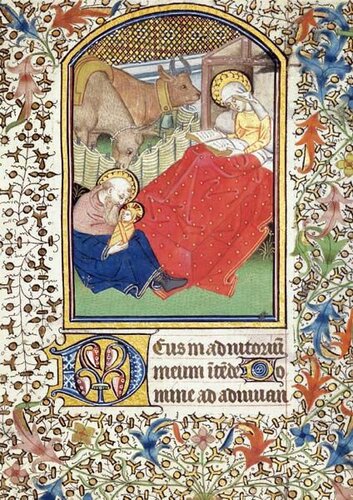 Deus in adiutoriū
meum ītēde Do
mine ad adiuuan